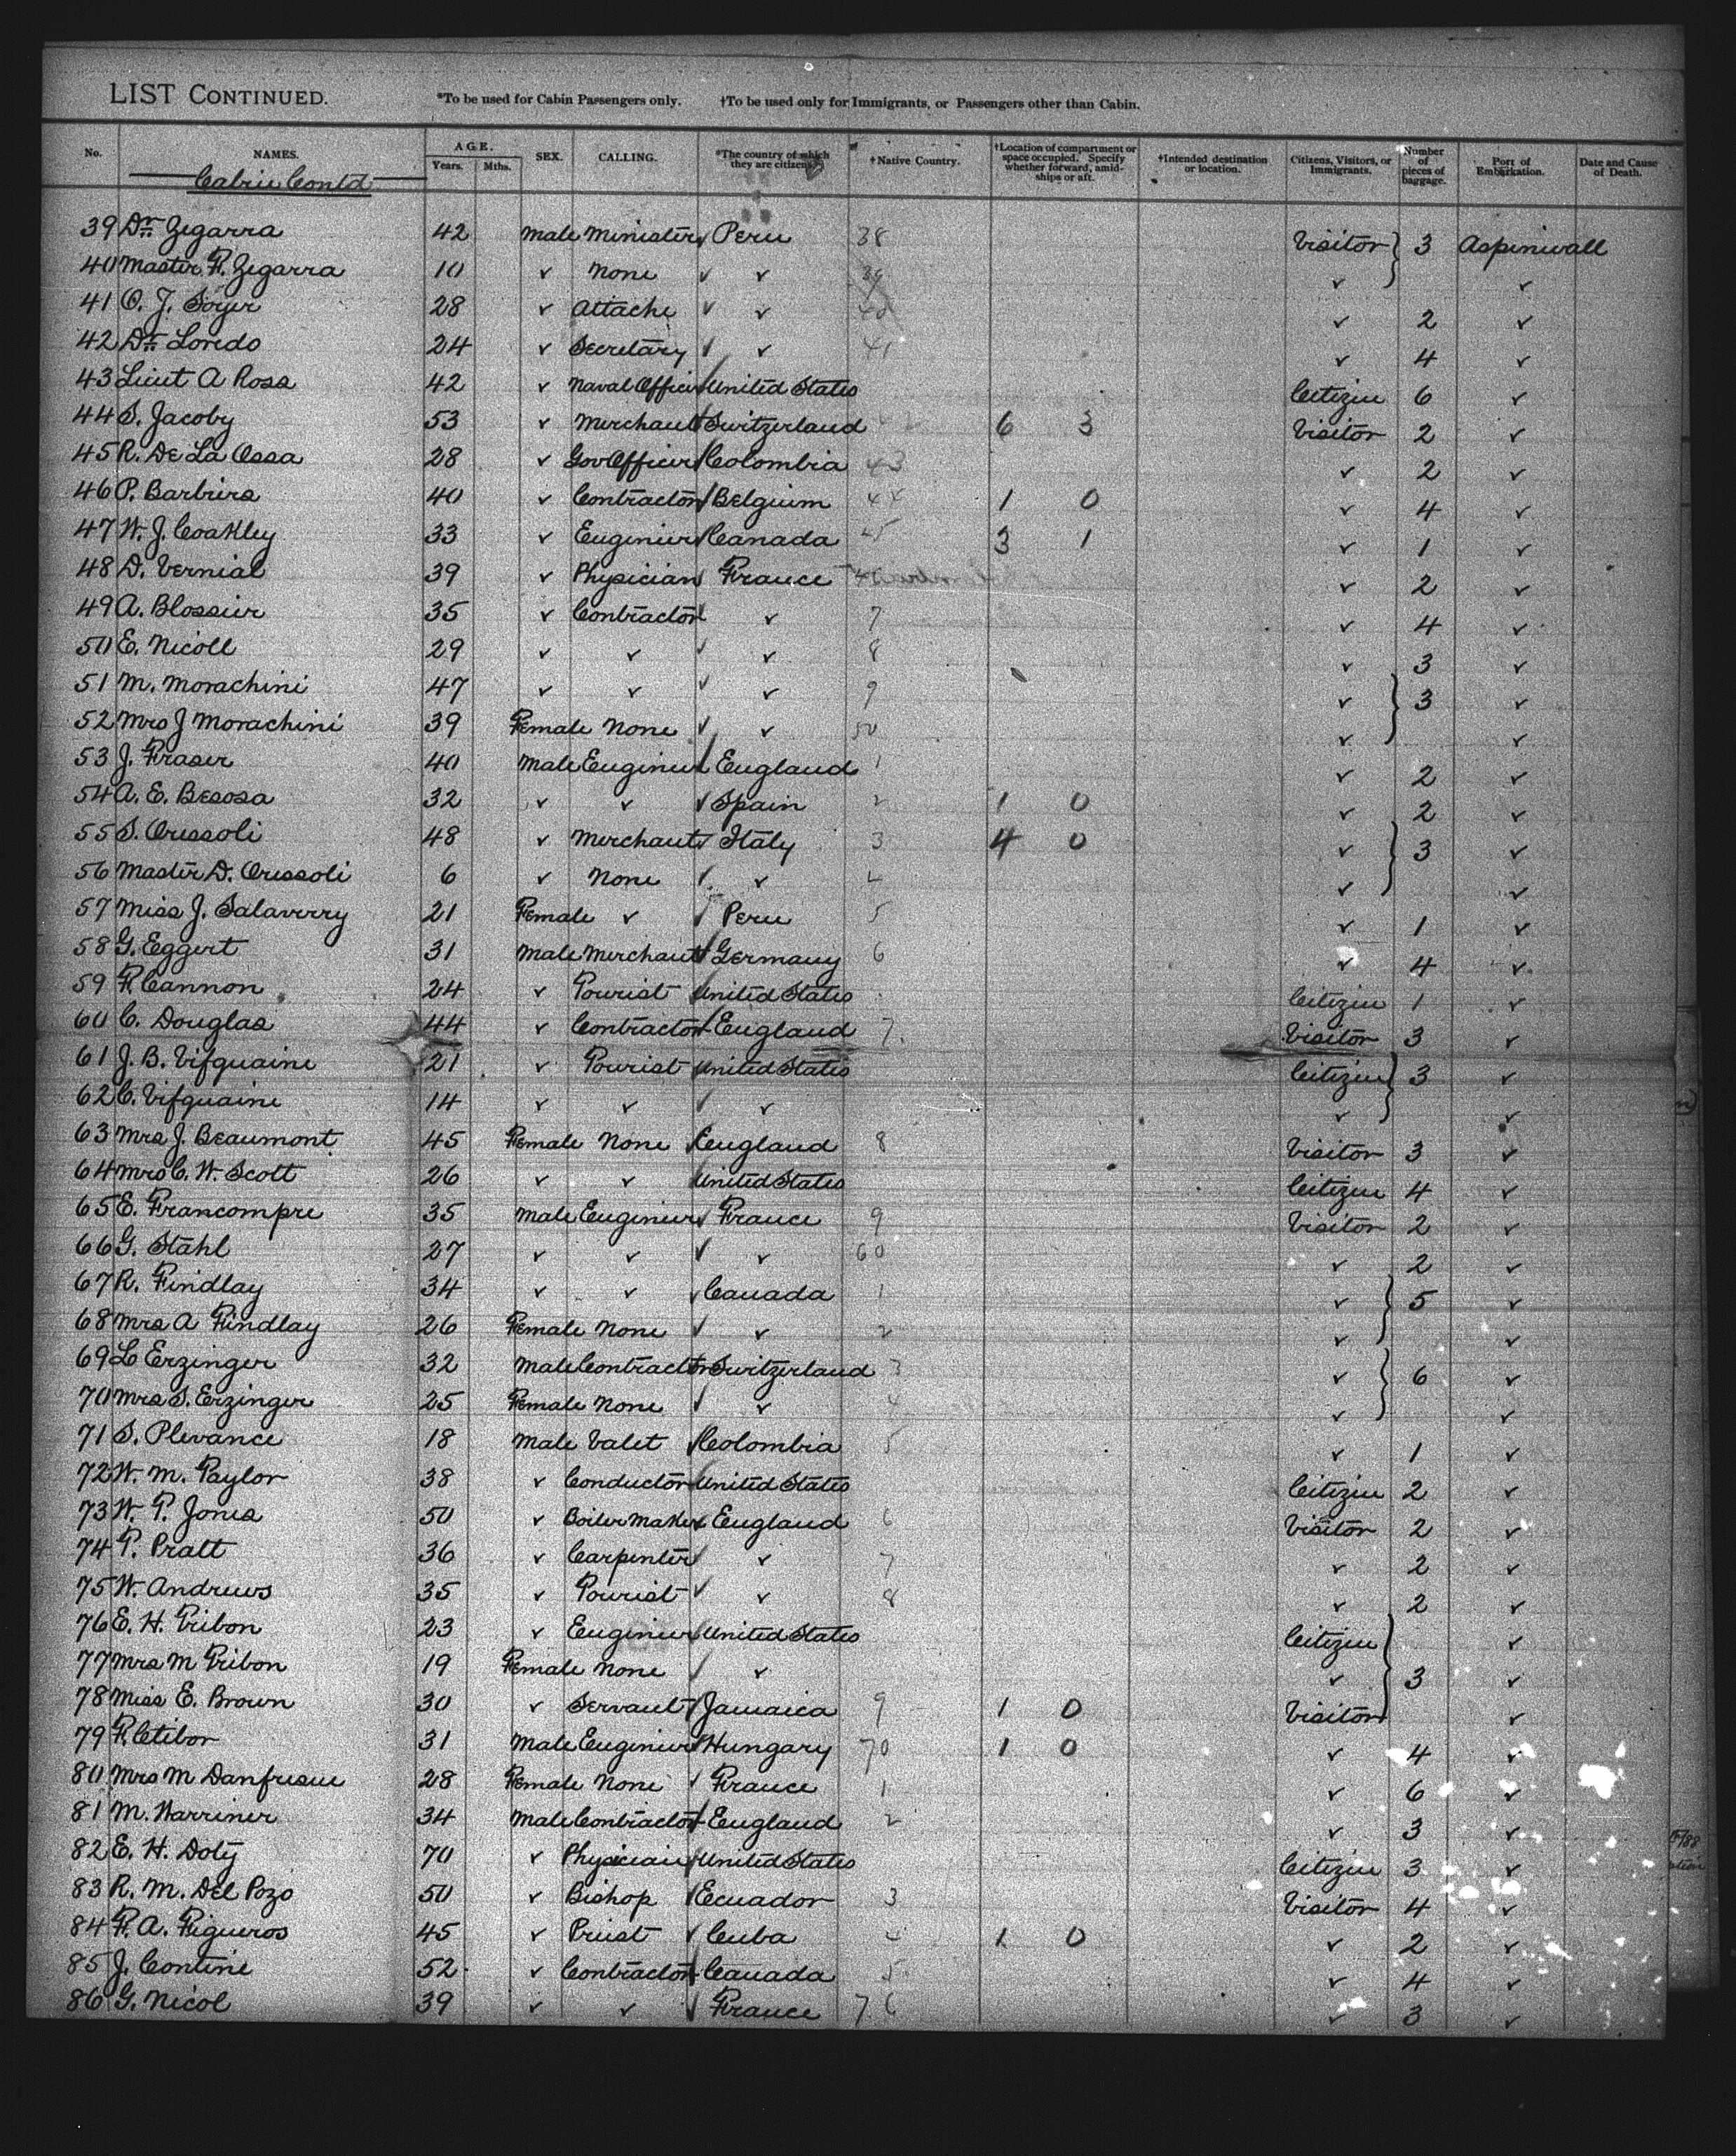 LIST CONTINUED. *To be used for Cabin Passengers only. †To be used only for Immigrants, or Passengers other than Cabin.
No. NAMES. AGE. Years. Mths. SEX. CALLING. *The country of which they are citizens. †Native Country. †Location of compartment or space occupied. Specify whether forward, amidships or aft. †Intended destination or location. Citizens, Visitors, or Immigrants. Number of pieces of baggage. Port of Embarkation. Date and Cause of Death.
Cabin Contd
39 Dr. Zegarra 42 Male Minister ✓ Peru 38 Visitor } 3 Aspinwall
40 Master F. Zegarra 10 ✓ None ✓ ✓ 39 ✓ ✓
41 O. J. Soyer 28 ✓ Attache ✓ ✓ 40 ✓ 2 ✓
42 Dr. Loredo 24 ✓ Secretary ✓ ✓ 41 ✓ 4 ✓
43 Lieut A Ross 42 ✓ Naval Officer ✓ United States Citizen 6 ✓
44 S. Jacoby 53 ✓ Merchant ✓ Switzerland 6 3 Visitor 2 ✓
45 R. De La Ossa 28 ✓ Gov Officer ✓ Colombia 43 ✓ 2 ✓
46 P. Barbiers 40 ✓ Contractor ✓ Belgium 44 1 0 ✓ 4 ✓
47 W. J. Coakley 33 ✓ Engineer ✓ Canada 45 3 1 ✓ 1 ✓
48 D. Vernial 39 ✓ Physician ✓ France 46 ✓ 2 ✓
49 A. Blossier 35 ✓ Contractor ✓ ✓ 7 ✓ 4 ✓
50 E. Nicoll 29 ✓ ✓ ✓ ✓ 8 ✓ 3 ✓
51 M. Morachini 47 ✓ ✓ ✓ ✓ 9 ✓ } 3 ✓
52 Mrs J Morachini 39 Female None ✓ ✓ 50 ✓ ✓
53 J. Fraser 40 Male Engineer ✓ England 1 ✓ 2 ✓
54 A. E. Besosa 32 ✓ ✓ ✓ Spain 2 1 0 ✓ 2 ✓
55 S. Oressoli 48 ✓ Merchant ✓ Italy 3 4 0 ✓ } 3 ✓
56 Master D. Oressoli 6 ✓ None ✓ ✓ 4 ✓ ✓
57 Miss J. Salaverry 21 Female ✓ ✓ Peru 5 ✓ 1 ✓
58 G. Eggert 31 Male Merchant ✓ Germany 6 ✓ 4 ✓
59 F. Cannon 24 ✓ Tourist ✓ United States Citizen 1 ✓
60 C. Douglas 44 ✓ Contractor ✓ England 7. Visitor 3 ✓
61 J. B. Vifquaine 21 ✓ Tourist ✓ United States Citizen } 3 ✓
62 C. Vifquaine 14 ✓ ✓ ✓ ✓ ✓ ✓
63 Mrs J. Beaumont 45 Female None ✓ England 8 Visitor 3 ✓
64 Mrs C. W. Scott 26 ✓ ✓ United States Citizen 4 ✓
65 E. Francompre 35 Male Engineer ✓ France 9 Visitor 2 ✓
66 G. Stahl 27 ✓ ✓ ✓ ✓ 60 ✓ 2 ✓
67 R. Findlay 34 ✓ ✓ ✓ Canada 1 ✓ } 5 ✓
68 Mrs A Findlay 26 Female None ✓ ✓ 2 ✓ ✓
69 L Erzinger 32 Male Contractor ✓ Switzerland 3 ✓ } 6 ✓
70 Mrs S. Erzinger 25 Female None ✓ ✓ 4 ✓ ✓
71 S. Plevance 18 Male Valet ✓ Colombia 5 ✓ 1 ✓
72 W. M. Taylor 38 ✓ Conductor ✓ United States Citizen 2 ✓
73 W. T. Jones 50 ✓ Boiler Maker ✓ England 6 Visitor 2 ✓
74 T. Pratt 36 ✓ Carpenter ✓ ✓ 7 ✓ 2 ✓
75 W. Andrews 35 ✓ Tourist ✓ ✓ 8 ✓ 2 ✓
76 E. H. Tribon 23 ✓ Engineer ✓ United States Citizen } ✓
77 Mrs M Tribon 19 Female None ✓ ✓ ✓ 3 ✓
78 Miss E. Brown 30 ✓ Servant ✓ Jamaica 9 1 0 Visitor ✓
79 F. Etibor 31 Male Engineer ✓ Hungary 70 1 0 ✓ 4 ✓
80 Mrs M Danfresne 28 Female None ✓ France 1 ✓ 6 ✓
81 M. Warriner 34 Male Contractor ✓ England 2 ✓ 3 ✓
82 E. H. Doty 70 ✓ Physician ✓ United States Citizen 3 ✓
83 R. M. Del Pozo 50 ✓ Bishop ✓ Ecuador 3 Visitor 4 ✓
84 F. A. Figueros 45 ✓ Priest ✓ Cuba 4 1 0 ✓ 2 ✓
85 J. Contine 52 ✓ Contractor ✓ Canada 5 ✓ 4 ✓
86 G. Nicol 39 ✓ ✓ ✓ France 76 ✓ 3 ✓